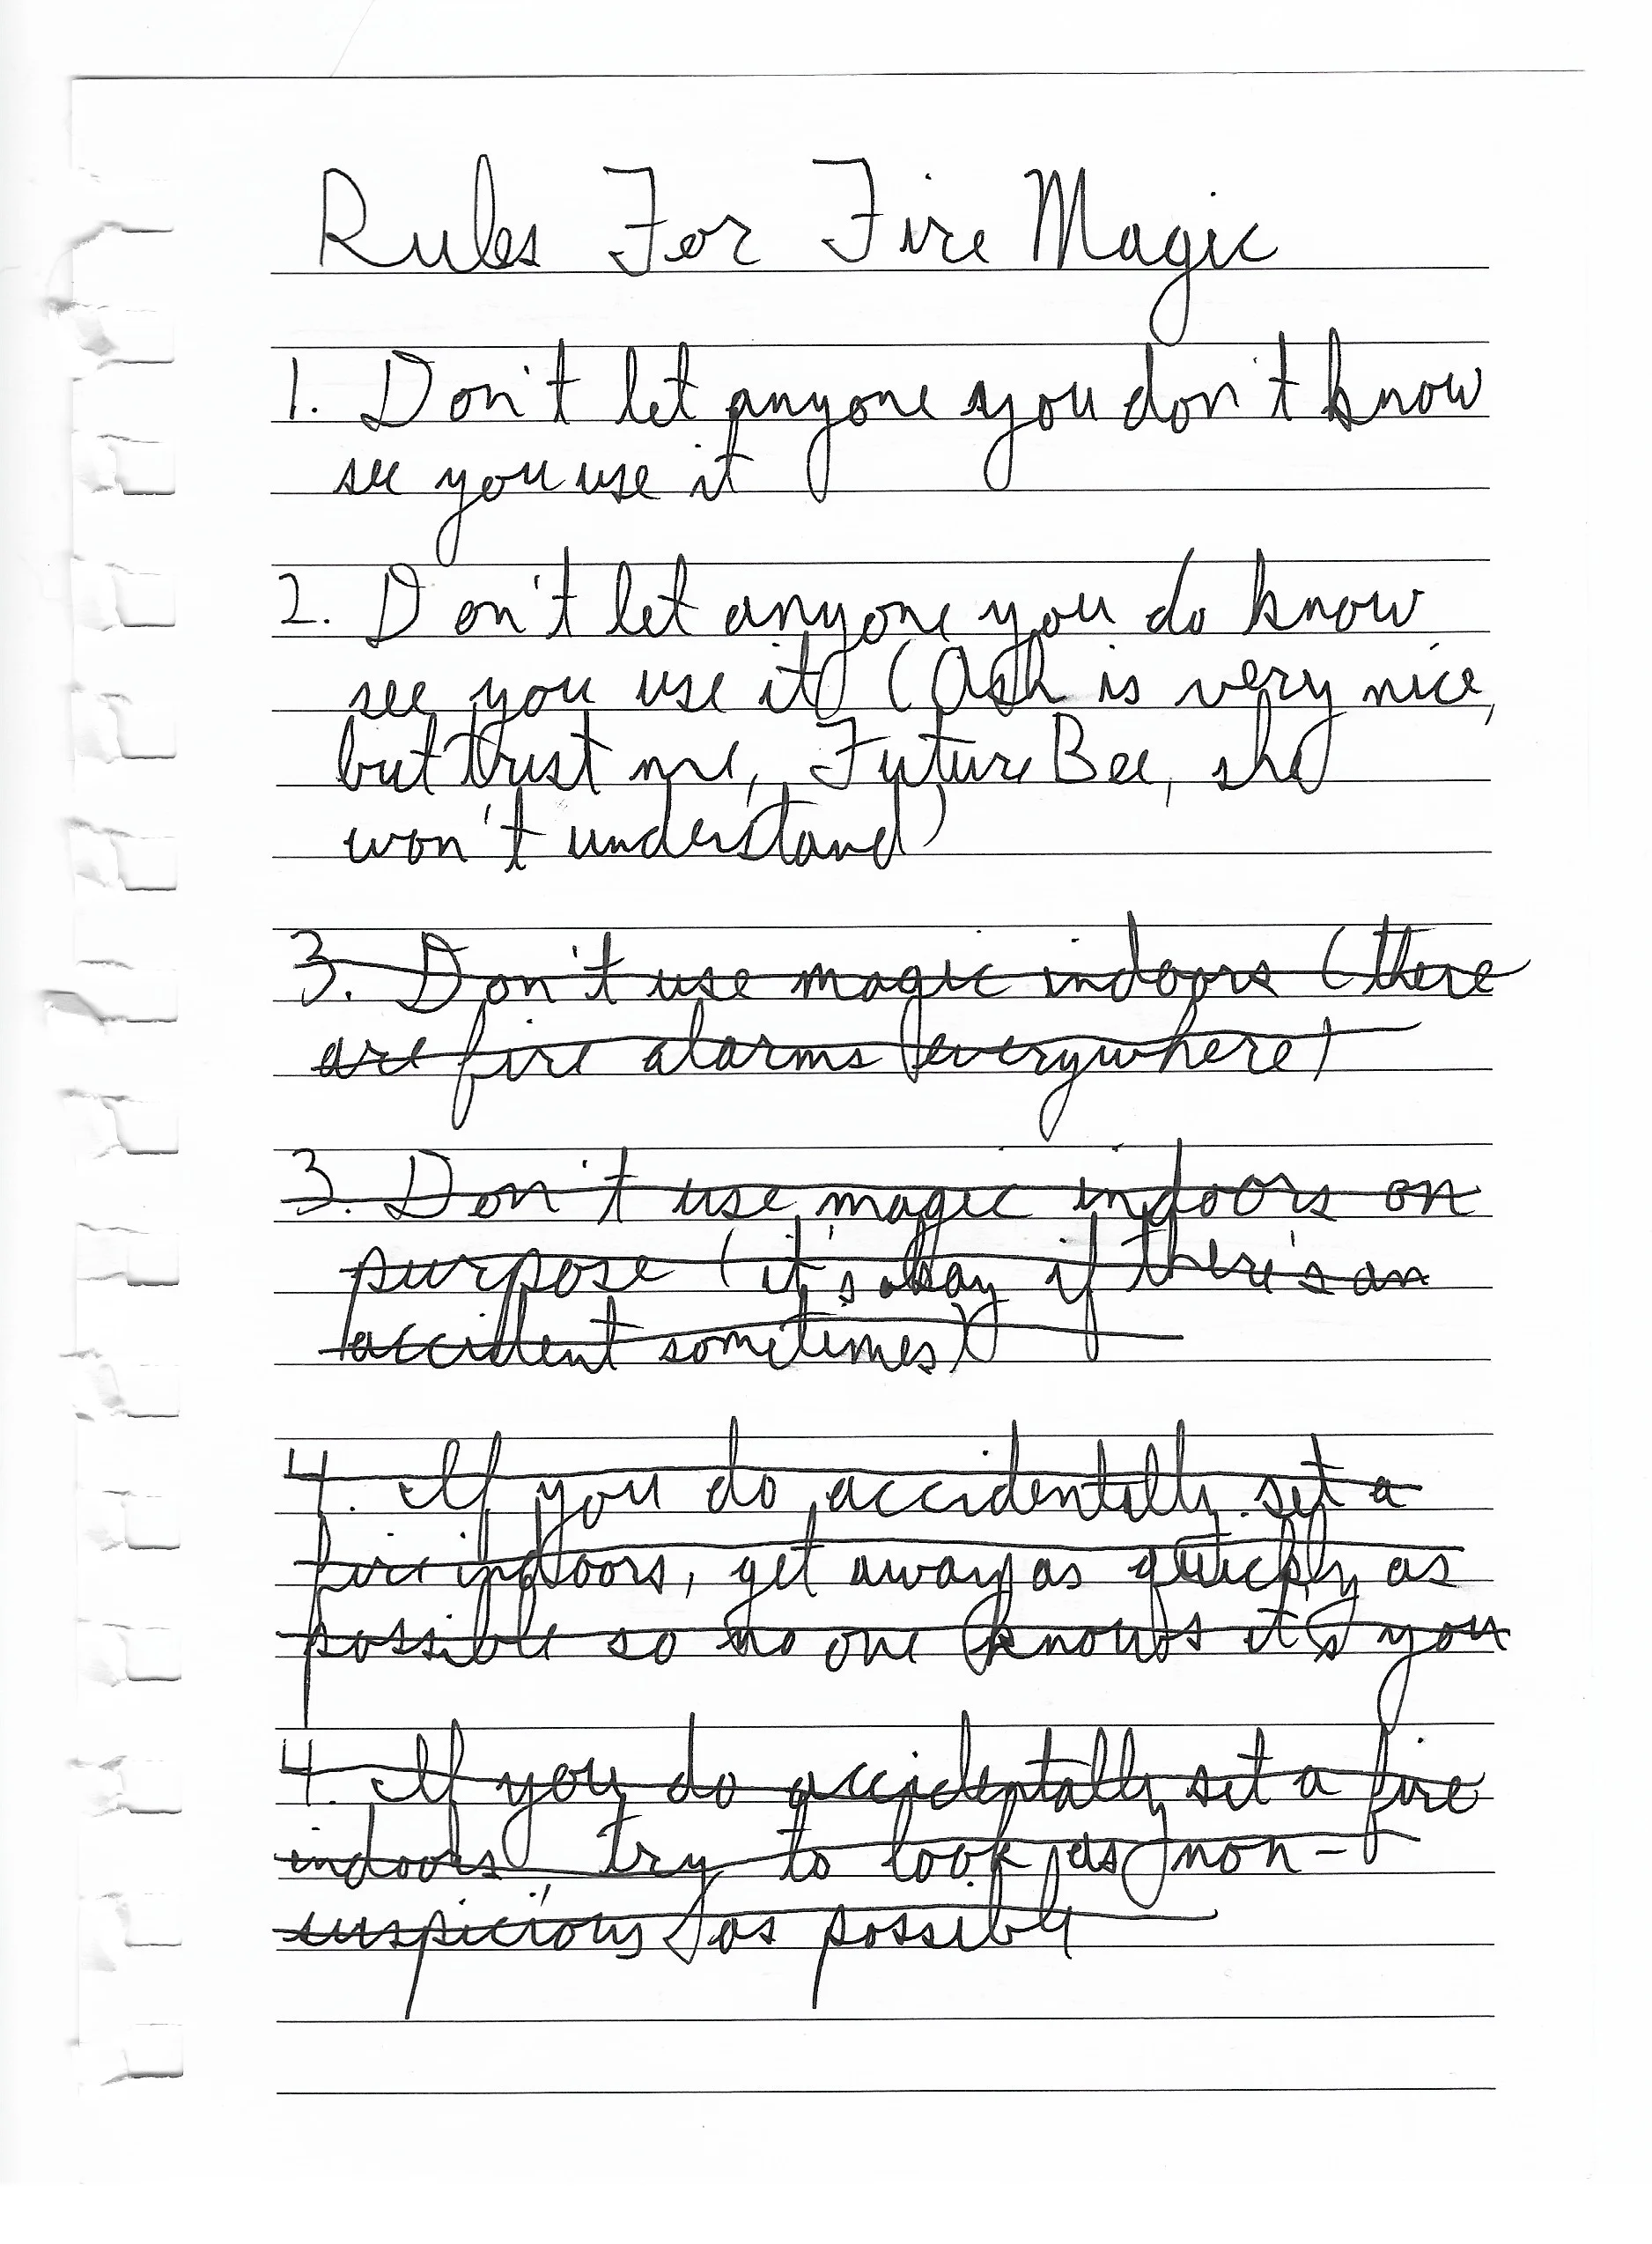 Rules For Fire Magic
1. Don't let anyone you don't know
see you use it
2. Don't let anyone you do know
see you use it (Ash is very nice,
but trust me, Future Bee, she
won't understand)
3. Don't use magic indoors (there
are fire alarms everywhere)
3. Don't use magic indoors on
purpose (it's okay if there's an
accident sometimes)
4. If you do accidentally set a
fire indoors, get away as quickly as
possible so no one knows it's you
4. If you do accidentally set a fire
indoors, try to look as non-
suspicious as possible